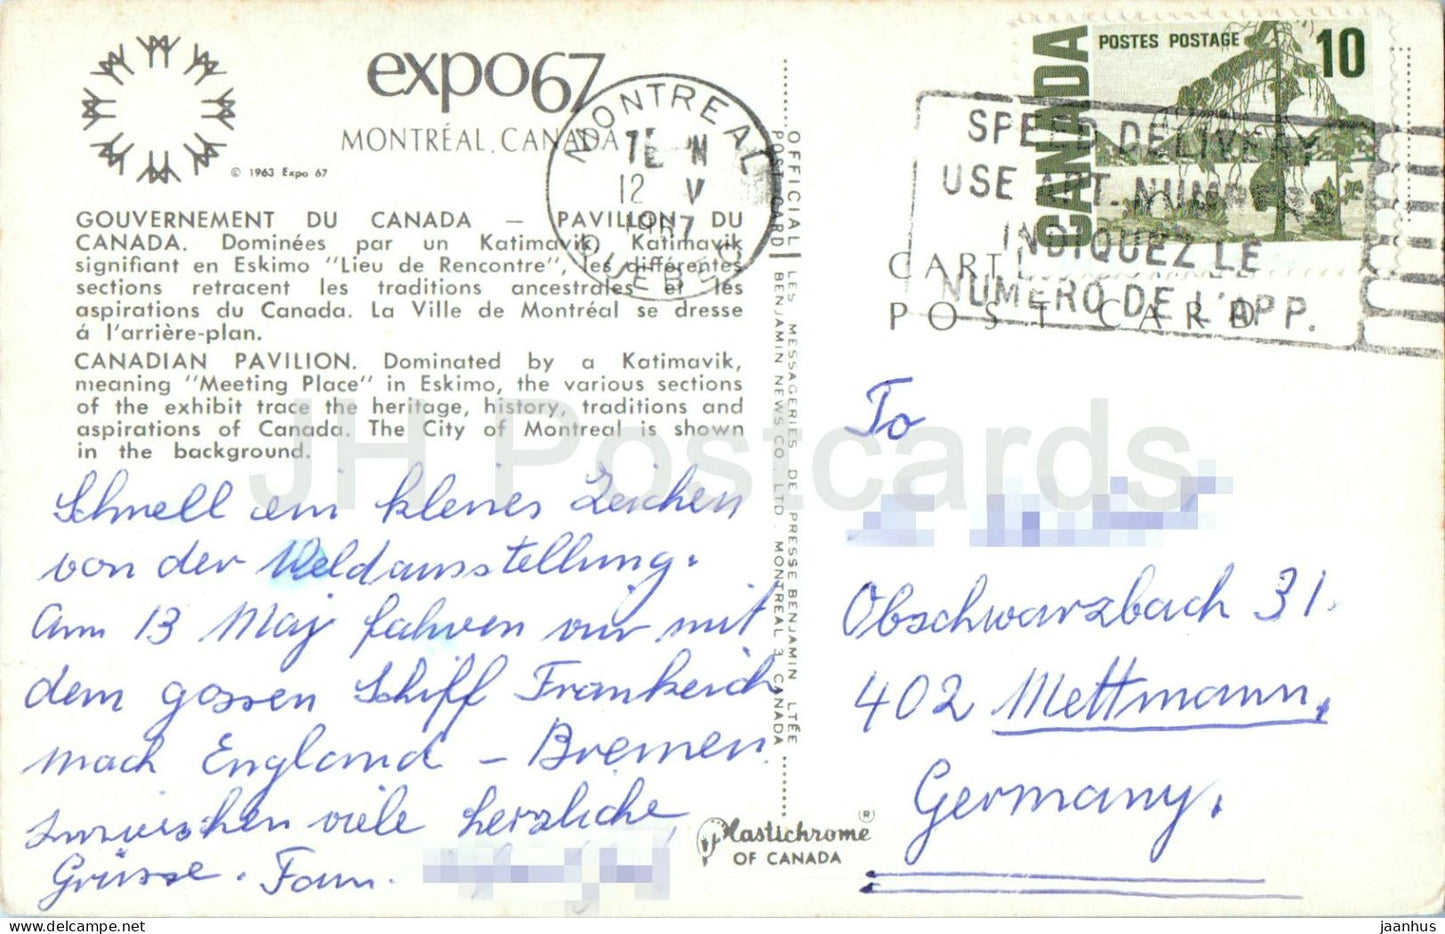 expo67
MONTRÉAL, CANADA
© 1963 Expo 67
GOUVERNEMENT DU CANADA — PAVILLON DU
CANADA. Dominées par un Katimavik, Katimavik
signifiant en Eskimo "Lieu de Rencontre", les différentes
sections retracent les traditions ancestrales et les
aspirations du Canada. La Ville de Montréal se dresse
á l'arrière-plan.
CANADIAN PAVILION. Dominated by a Katimavik,
meaning "Meeting Place" in Eskimo, the various sections
of the exhibit trace the heritage, history, traditions and
aspirations of Canada. The City of Montreal is shown
in the background.
Schnell ein kleines Zeichen
von der Weldausstellung.
Am 13 Maj fahren wir mit
dem gossen Schiff Frankreich
nach England – Bremen.
Inzwischen viele herzliche
Grüsse. Fam.
OFFICIAL POST CARD
LES MESSAGERIES DE PRESSE BENJAMIN LTÉE
BENJAMIN NEWS CO. LTD. MONTREAL 3, CANADA
Plastichrome ®
OF CANADA
MONTREAL
12 V
1967
QUEBEC
CANADA
POSTES POSTAGE
10
SPEED DELIVERY
USE APT. NUMBER
INDIQUEZ LE
NUMERO DE L'APP.
CARTE
POST CARD
To
Obschwarzbach 31.
402 Mettmann,
Germany.
JH Postcards
jaanhus
delcampe.net